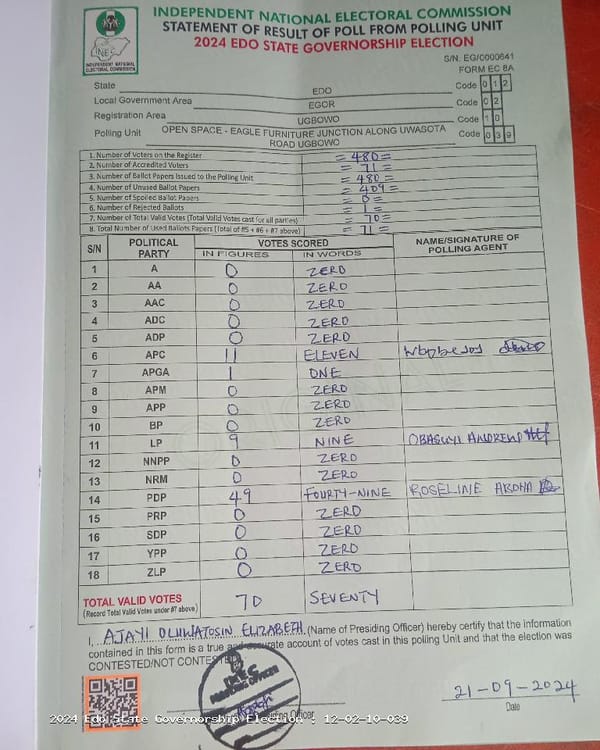 INDEPENDENT NATIONAL ELECTORAL COMMISSION
STATEMENT OF RESULT OF POLL FROM POLLING UNIT
2024 EDO STATE GOVERNORSHIP ELECTION
INEC
INDEPENDENT NATIONAL
ELECTORAL COMMISSION
S/N. EG/0000641
FORM EC 8A
State EDO Code 0 1 2
Local Government Area EGOR Code 0 2
Registration Area UGBOWO Code 1 0
Polling Unit OPEN SPACE - EAGLE FURNITURE JUNCTION ALONG UWASOTA ROAD UGBOWO Code 0 3 9
1. Number of Voters on the Register = 480 =
2. Number of Accredited Voters = 71 =
3. Number of Ballot Papers Issued to the Polling Unit = 480 =
4. Number of Unused Ballot Papers = 409 =
5. Number of Spoiled Ballot Papers = 0 =
6. Number of Rejected Ballots = 1 =
7. Number of Total Valid Votes (Total Valid Votes cast for all parties) = 70 =
8. Total Number of Used Ballots Papers (Total of #5 + #6 + #7 above) = 71 =
S/N POLITICAL PARTY VOTES SCORED NAME/SIGNATURE OF POLLING AGENT
IN FIGURES IN WORDS
1 A 0 ZERO
2 AA 0 ZERO
3 AAC 0 ZERO
4 ADC 0 ZERO
5 ADP 0 ZERO
6 APC 11 ELEVEN
7 APGA 1 ONE
8 APM 0 ZERO
9 APP 0 ZERO
10 BP 0 ZERO
11 LP 9 NINE OBASUYI ANDREW
12 NNPP 0 ZERO
13 NRM 0 ZERO
14 PDP 49 FOURTY-NINE ROSELINE
15 PRP 0 ZERO
16 SDP 0 ZERO
17 YPP 0 ZERO
18 ZLP 0 ZERO
TOTAL VALID VOTES 70 SEVENTY
(Record Total Valid Votes under #7 above)
I, AJAYI OLUWATOSIN ELIZABETH (Name of Presiding Officer) hereby certify that the information
contained in this form is a true and accurate account of votes cast in this polling Unit and that the election was
CONTESTED/NOT CONTESTED
INEC
PRESIDING OFFICER
21-09-2024
Officer Date
2024 Edo State Governorship Election : 12-02-10-039